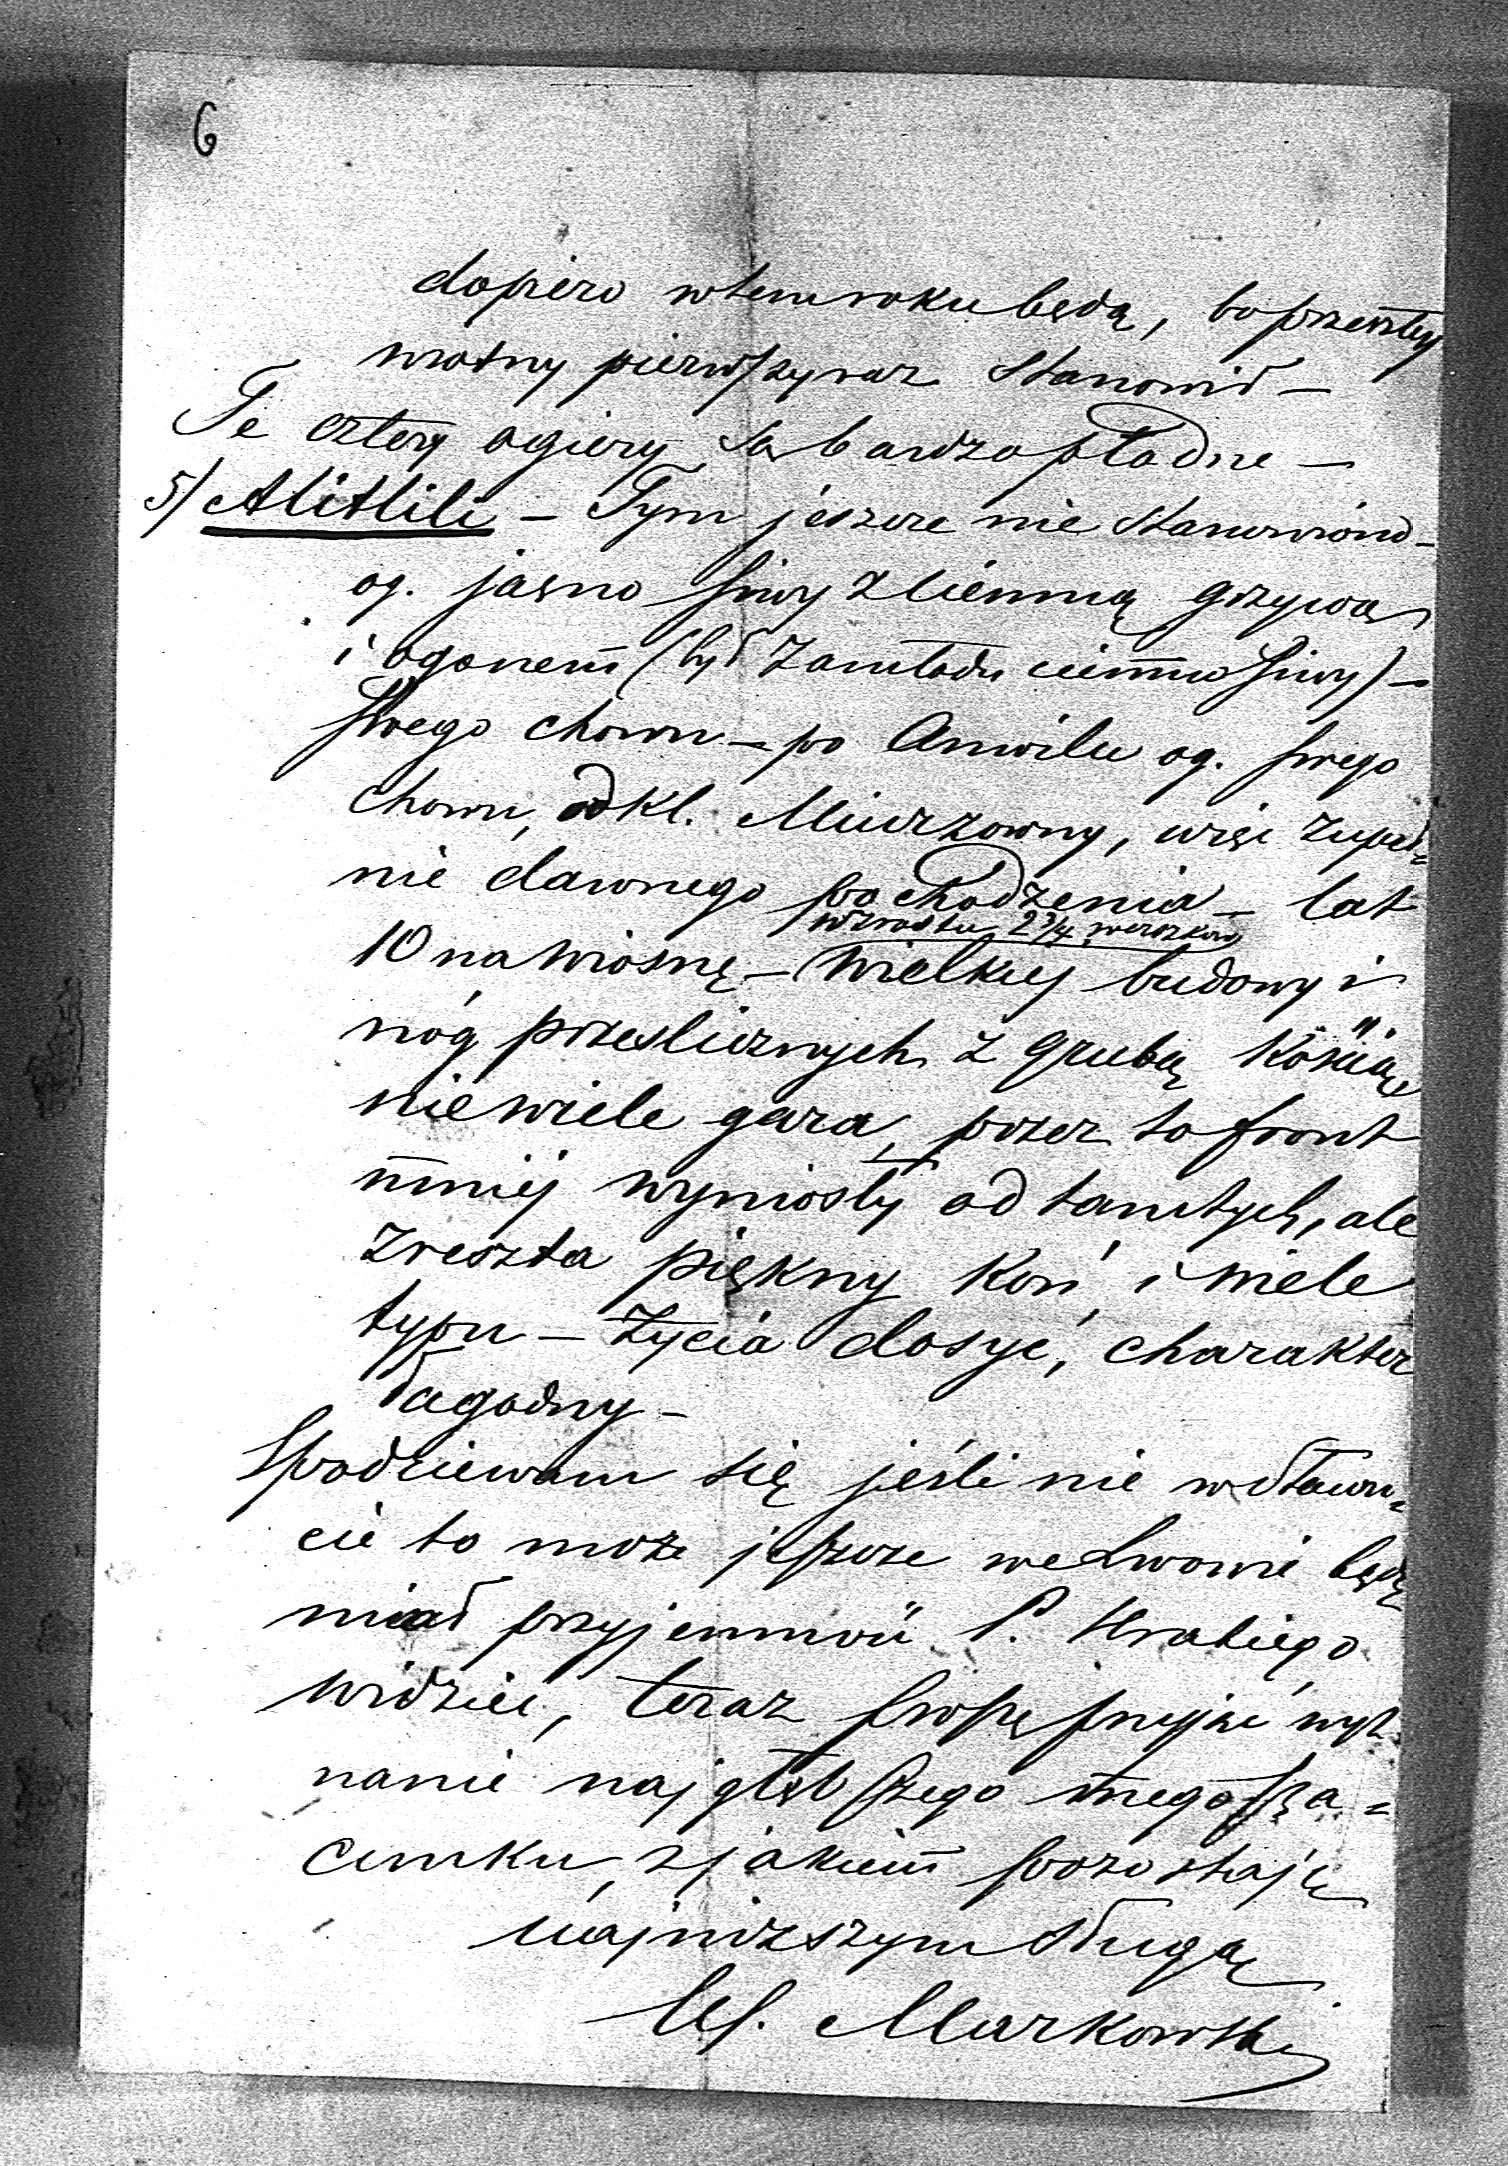 6
dopiero w tem roku będą, bo przeszłej
wiosny pierwszy raz stanowił –
Te cztery ogiery są bardzo płodne –
5/ Alitlili – Tym jeszcze nie stanowiono –
og. jasno siwy z ciemną grzywą
i ogonem (był zamłodu ciemno siwy) –
swego chowu – po Anwilu og. swego
chowu, od kl. Miurzowny, więc zupeł=
nie dawnego pochodzenia – lat
wzrostu 2 3/4 werszków
10 na wiosnę – wielkiej budowy i
nóg prześlicznych z grubą kością
niewiele gara, przez to front
mniej wyniosły od tamtych, ale
zreszta piękny koń i wiele
typu – życia dosyć, charakter
łagodny –
Spodziewam się jeśli nie w Sławu=
cie to może jeszcze we Lwowie będę
miał przyjemność P. Hrabiego
widzieć, teraz proszę przyjąć wyz=
nanie najgłębszego mego sza=
cunku, z jakiem pozostaję
najniższym sługą
Markowski